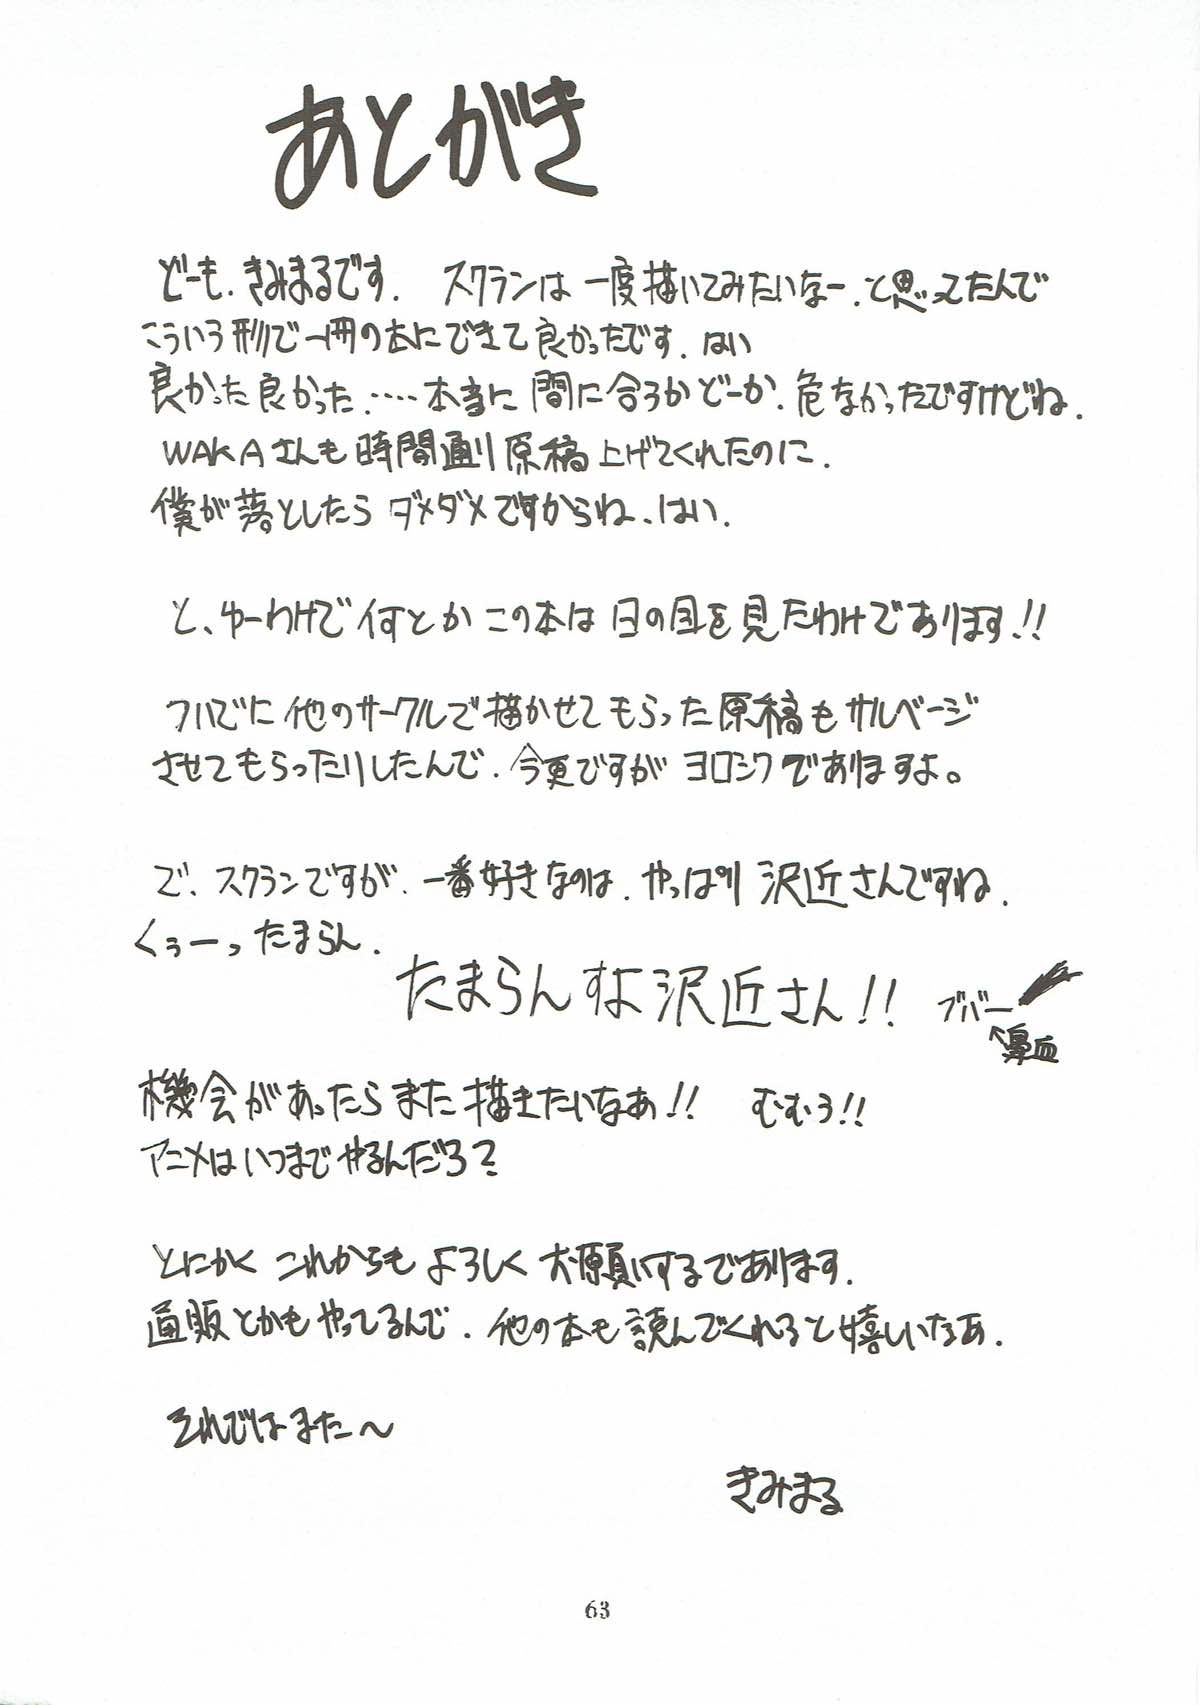 あとがき
どーも、きみまるです. スクランは一度描いてみたいなー、と思ってたんで
こういう形で一冊の本にできて良かったです. はい
良かった良かった.····本当に間に合うかどーか、危なかったですけどね.
WAKAさんも時間通り原稿上げてくれたのに.
僕が落としたらダメダメですからね、はい.
と、ゆーわけで何とかこの本は日の目を見たわけであります!!
ついでに他のサークルで描かせてもらった原稿もサルベージ
させてもらったりしたんで、今更ですがヨロシクでありますよ。
で、スクランですが、一番好きなのは、やっぱり沢近さんですね.
くぅーったまらん.
たまらんすよ沢近さん!! ブバー
←鼻血
機会があったらまた描きたいなあ!! むむう!!
アニメはいつまでやるんだろ?
とにかくこれからもよろしくお願いするであります.
通販とかもやってるんで、他の本も読んでくれると嬉しいなあ.
それではまた〜
きみまる
63